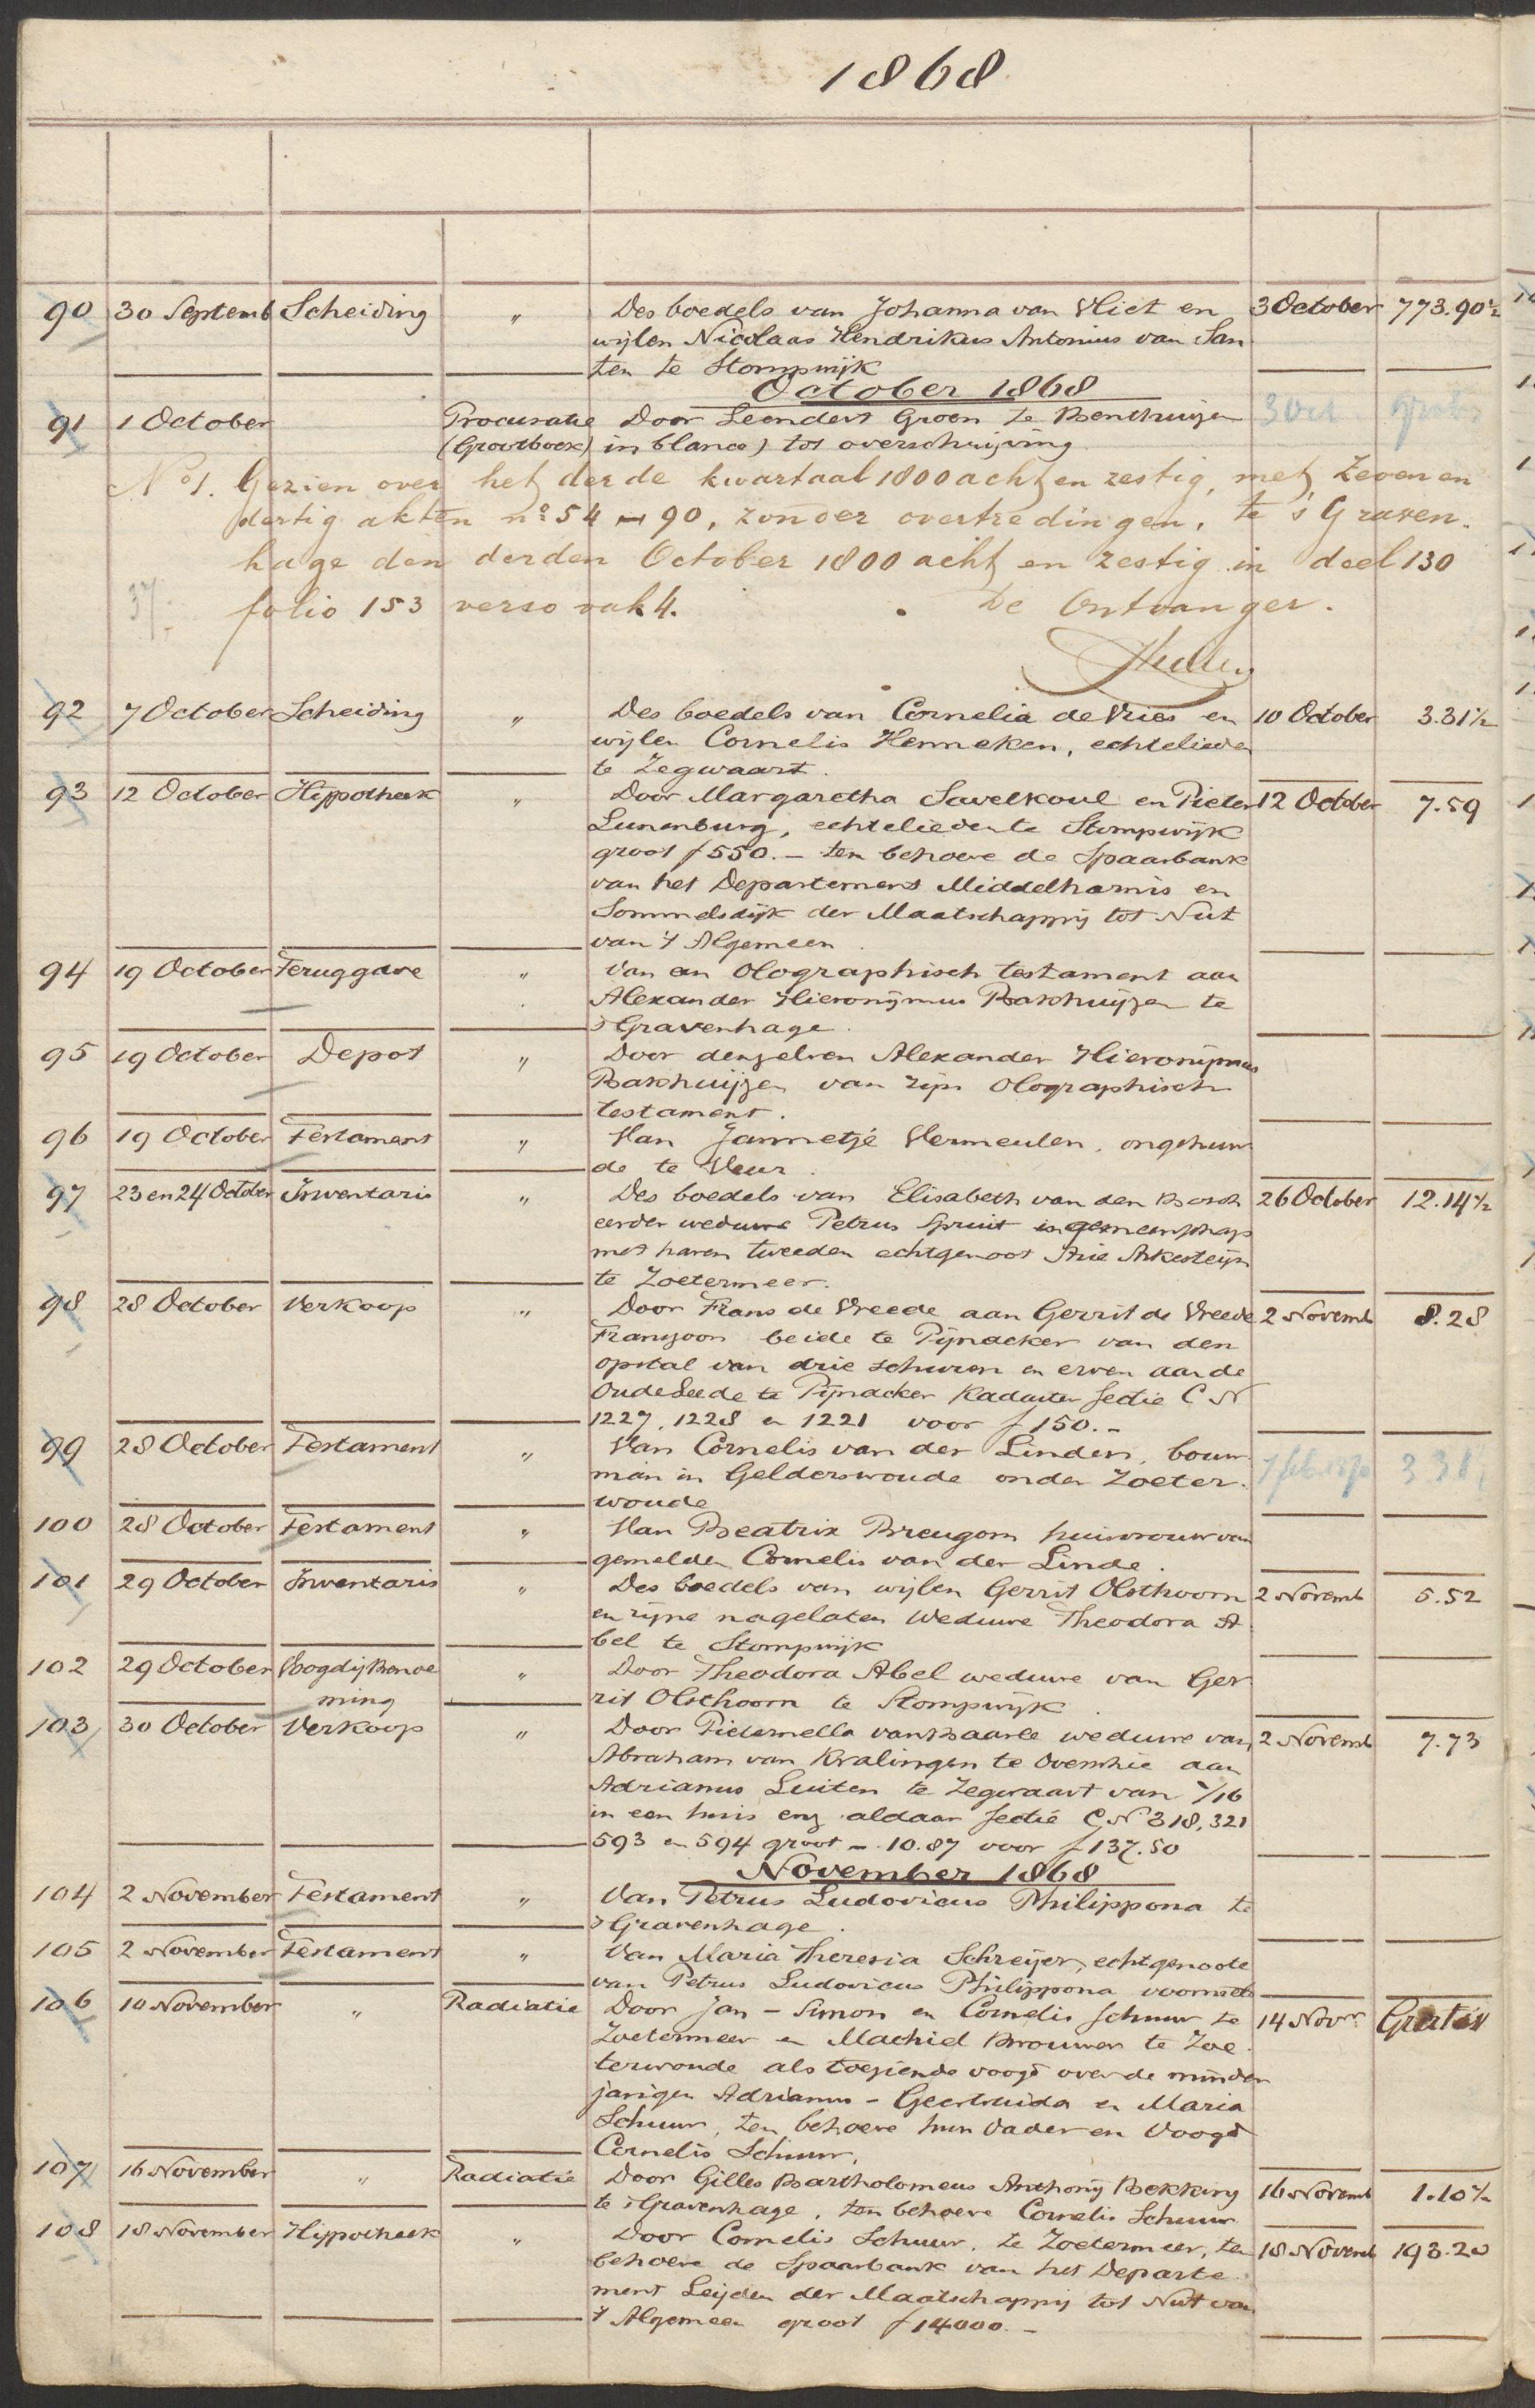 1868
90 30 Septemb Scheiding " Des boedels van Johanna van Vliet en 3 October 773.90½
wijlen Nicolaas Hendrikus Antonius van San
ten te Stompwijk
October 1868
91 1 October Procuratie Door Leendert Groen te Benthuizen 3 Oct Gratis
(Grootboek) in blanco) tot overschrijving
No 1. Gezien over het derde kwartaal 1800 acht en zestig, met zeven en
dertig akten no 54 - 90, zonder overtredingen, te 's Graven.
hage den derden October 1800 acht en zestig in deel 130
37 folio 153 verso vak 4. De Ontvanger.
92 7 October Scheiding " Des boedels van Cornelia de Vries en 10 October 3.31½
wijlen Cornelis Henneken, echtelieden
te Zegwaart.
93 12 October Hypotheek " Door Margaretha Savelkoul en Pieter 12 October 7.59
Lunenburg, echtelieden te Stompwijk
groot f 550.- ten behoeve de Spaarbank
van het Departement Middelharnis en
Sommelsdijk der Maatschappij tot Nut
van 't Algemeen.
94 19 October Teruggave " Van een Olographisch testament aan
Alexander Hieronijmus Bakhuijzen te
's Gravenhage.
95 19 October Depot " Door denzelven Alexander Hieronijmus
Bakhuijzen van zijn Olographisch
testament.
96 19 October Testament " Van Jannetje Vermeulen, ongehuw
de te Veur.
97 23 en 24 October Inventaris " Des boedels van Elisabeth van den Bosch 26 October 12.14½
eerder weduwe Petrus Spruit in gemeenschap
met haren tweeden echtgenoot Arie Arkesteijn
te Zoetermeer.
98 28 October Verkoop " Door Frans de Vreede aan Gerrit de Vreede 2 Novemb 8.28
Franszoon beide te Pijnacker van den
opstal van drie schuren en erven aan de
Oude Leede te Pijnacker Kadaster Sectie C No
1227, 1228 en 1221 voor f 150.-
99 28 October Testament " Van Cornelis van der Linden, bouw
man in Gelderswoude onder Zoeter.
woude
100 28 October Testament " Van Beatrix Breugom huisvrouw van
gemelden Cornelis van der Linde.
101 29 October Inventaris " Des boedels van wijlen Gerrit Olsthoorn 2 Novemb 5.52
en zijne nagelaten Weduwe Theodora A
bel te Stompwijk
102 29 October Voogdij Benoe " Door Theodora Abel weduwe van Ger
ming rit Olsthoorn te Stompwijk.
103 30 October Verkoop " Door Pieternella van Baarle weduwe van 2 Novemb 7.73
Abraham van Kralingen te Overschie aan
Adrianus Luiten te Zegwaart van 7/16
in een huis enz aldaar Sectie C No 318, 321
593 en 594 groot -.10.87 voor f 137.50
November 1868
104 2 November Testament " Van Petrus Ludovicus Philippona te
's Gravenhage.
105 2 November Testament " Van Maria Theresia Schreijer, echtgenoote
van Petrus Ludovicus Philippona voormeld
106 10 November " Radiatie Door Jan - Simon en Cornelis Schuur te 14 Novr Gratis
Zoetermeer en Machiel Brouwer te Zoe.
terwoude als toeziende voogd over de minder
jarigen Adrianus - Geertruida en Maria
Schuur, ten behoeve hun Vader en Voogd
Cornelis Schuur.
107 16 November " Radiatie Door Gilles Bartholomeus Anthonij Bekking 16 Novemb 1.10½
te 's Gravenhage, ten behoeve Cornelis Schuur
108 18 November Hypotheek " Door Cornelis Schuur, te Zoetermeer, ten 18 Novemb 193.20
behoeve de Spaarbank van het Departe.
ment Leijden der Maatschappij tot Nut van
't Algemeen groot f 14000.-